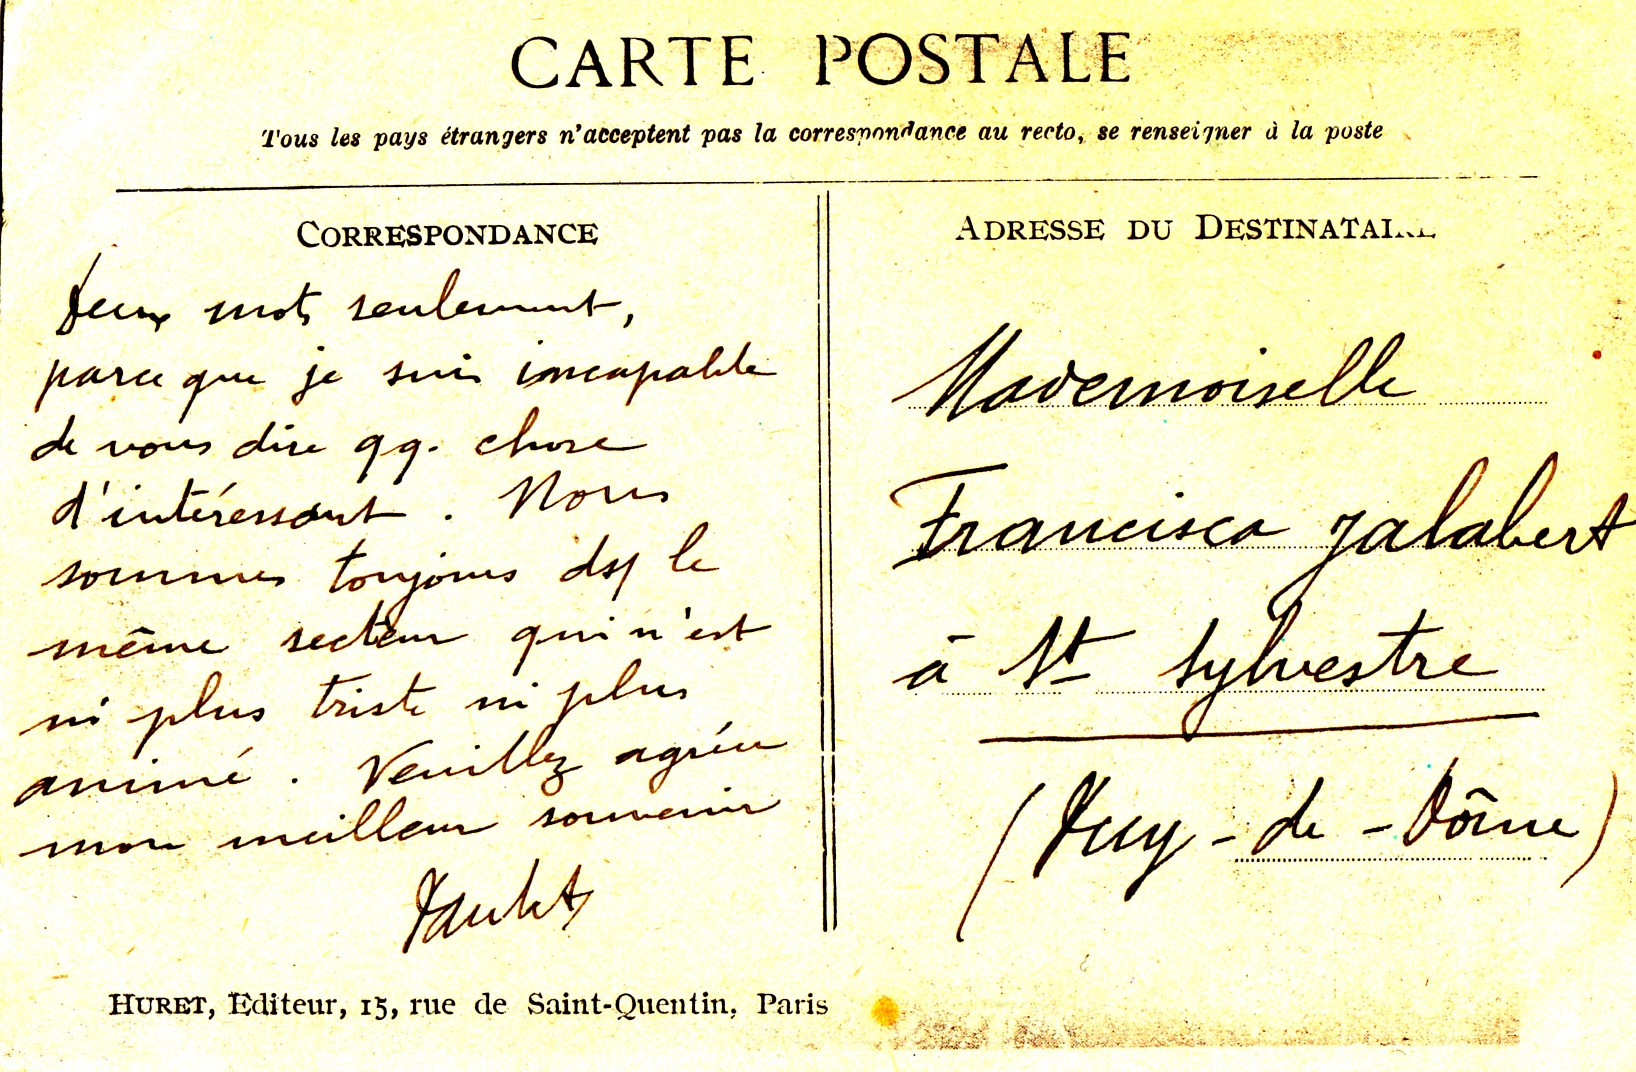 CARTE POSTALE
Tous les pays étrangers n'acceptent pas la correspondance au recto, se renseigner à la poste
CORRESPONDANCE
Deux mots seulement,
parce que je suis incapable
de vous dire qq. chose
d'intéressant. Nous
sommes toujours ds le
même secteur qui n'est
ni plus triste ni plus
animé. Veuillez agréer
mon meilleur souvenir
HURET, Editeur, 15, rue de Saint-Quentin, Paris
ADRESSE DU DESTINATAIRE
Mademoiselle
Francisca Jalabert
à St Sylvestre
(Puy-de-Dôme)